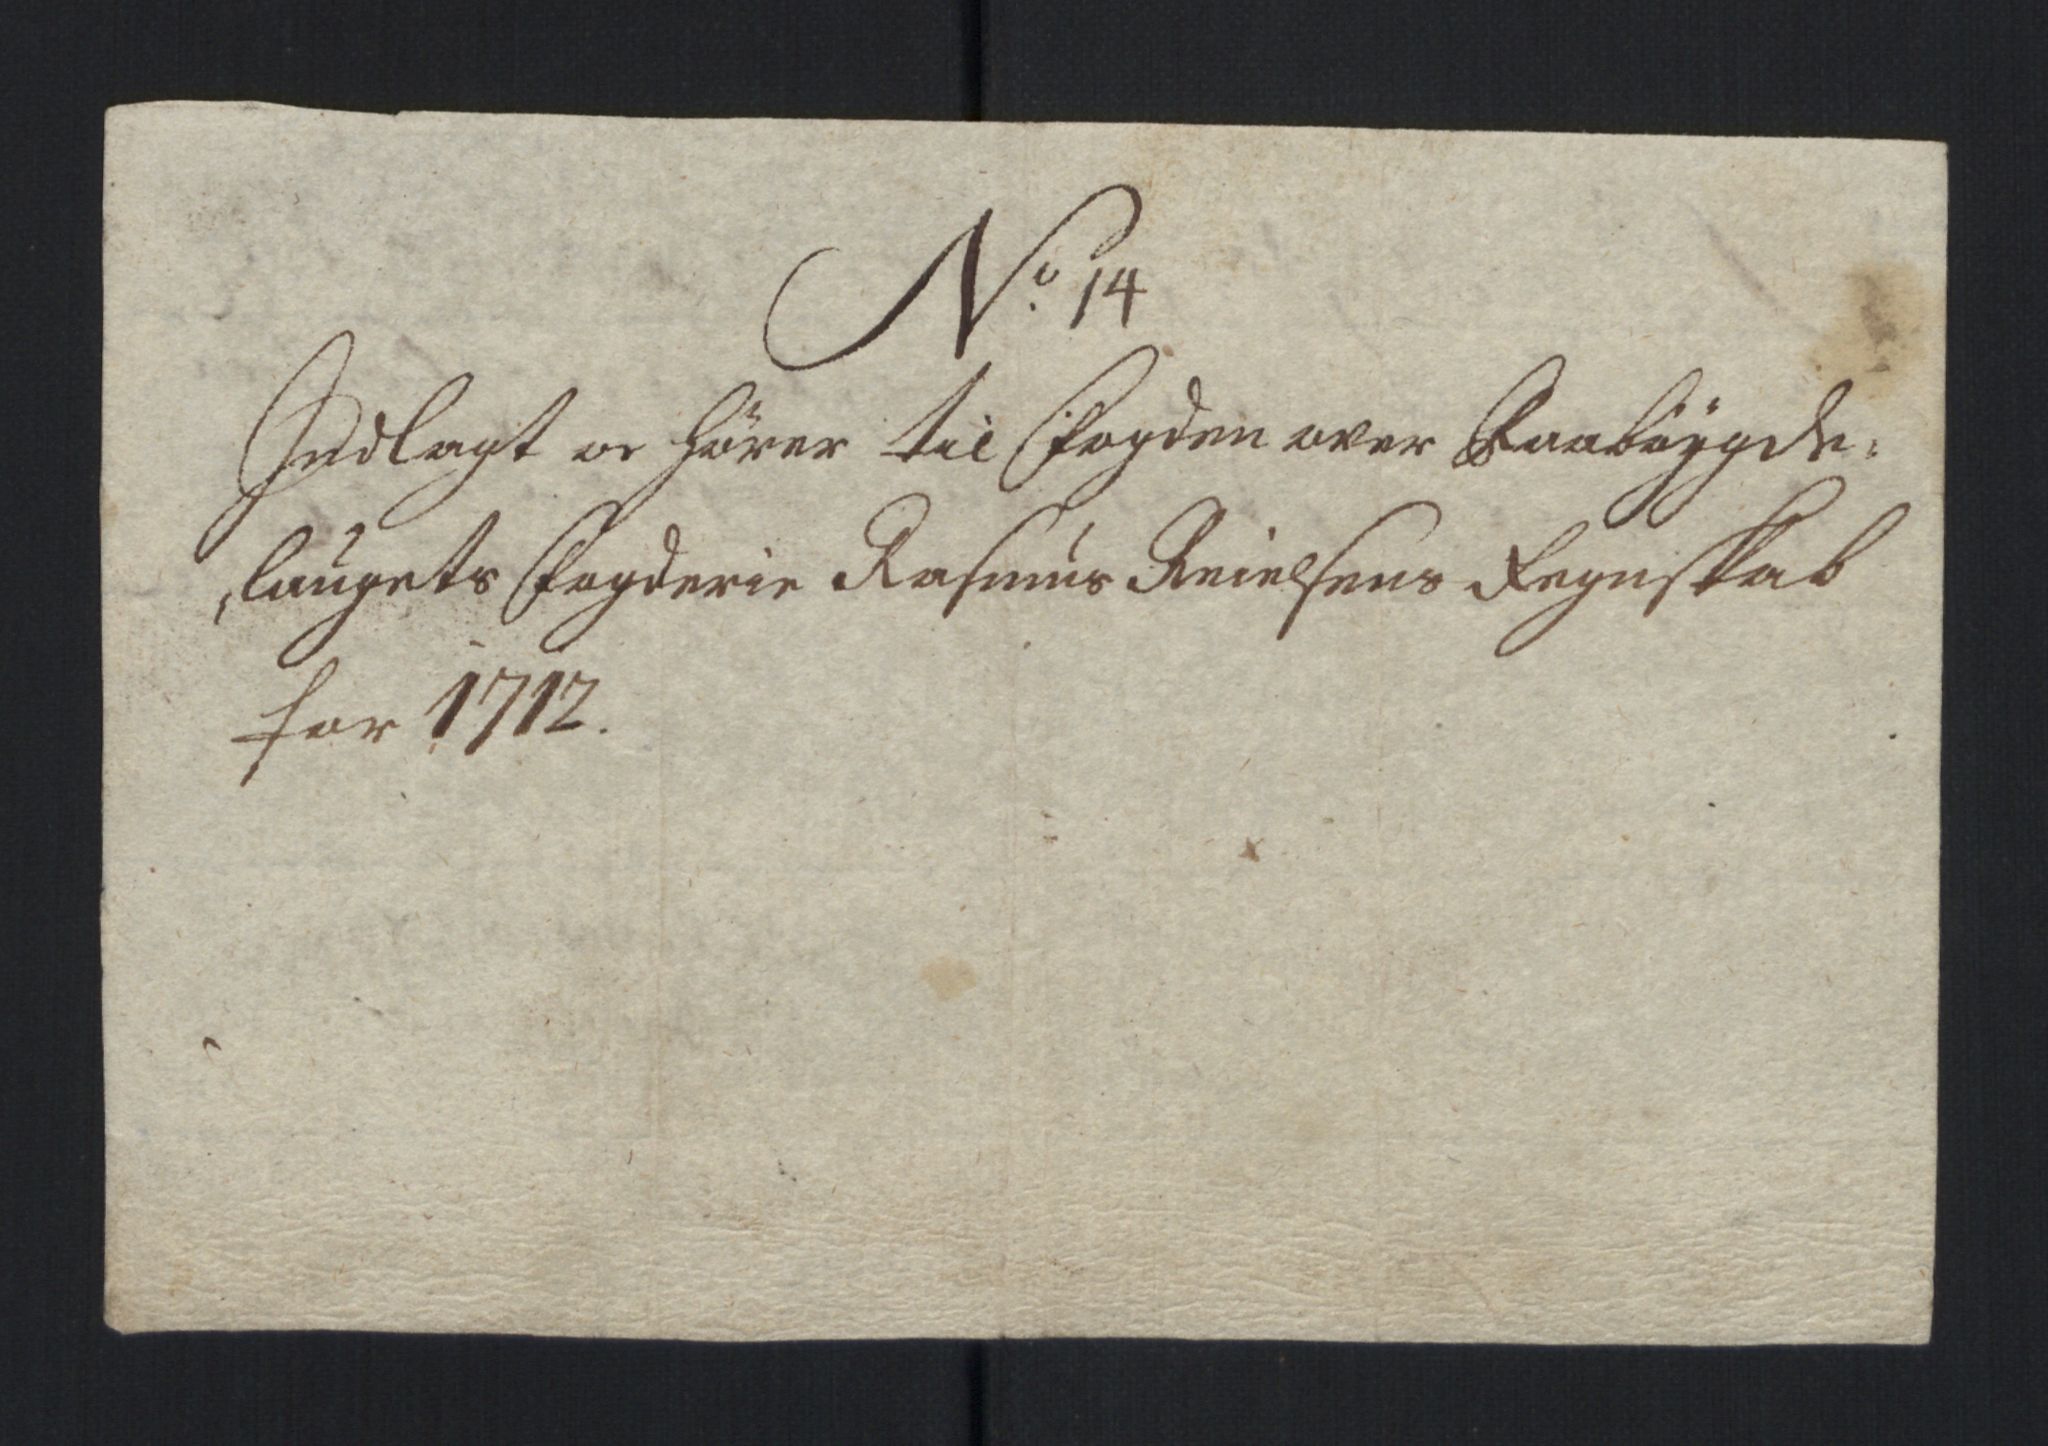 No 14
Indlagt er hörer til Fogden over Raaböygde-
laugets Fogderie Rasmus Reielsens Regnskab
for 1712.